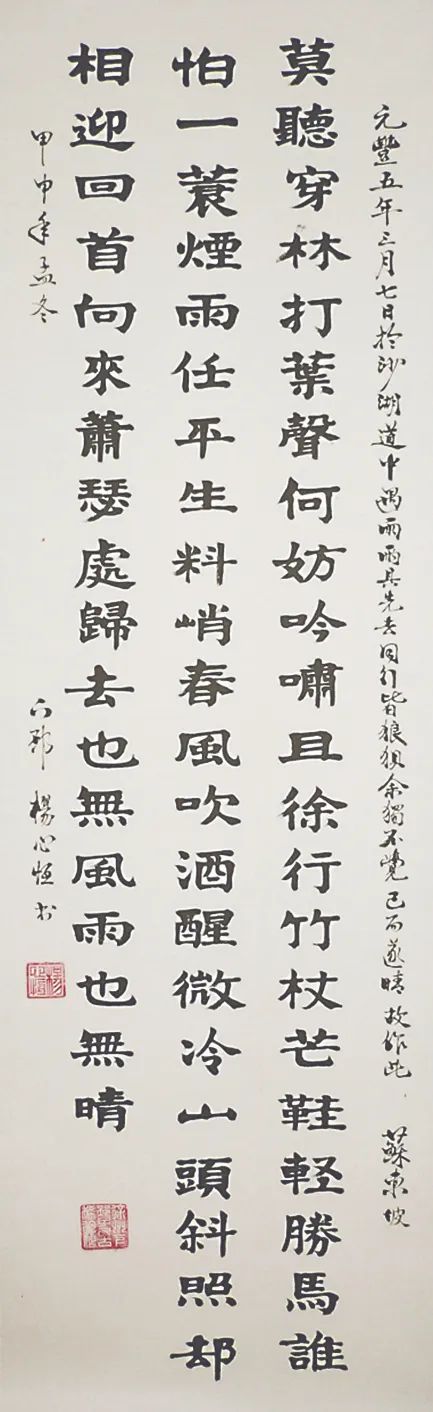 元豐五年三月七日於沙湖道中遇雨雨具先去同行皆狼狽余獨不覺已而遂晴故作此 蘇東坡
莫聽穿林打葉聲何妨吟嘯且徐行竹杖芒鞋軽勝馬誰
怕一蓑煙雨任平生料峭春風吹酒醒微冷山頭斜照却
相迎回首向來蕭瑟處歸去也無風雨也無晴
甲申年孟冬 下邳 楊心恒书